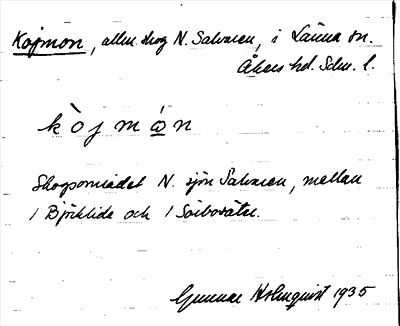 Kojmon, allm. skog N. Salvaren, i Länna sn.
Åkers hd. Sdm. l.
kòjmȧn
Skogsområdet N. sjön Salvaren, mellan
/ Björklida och / Sörbosäter.
Gunnar Holmquist 1935